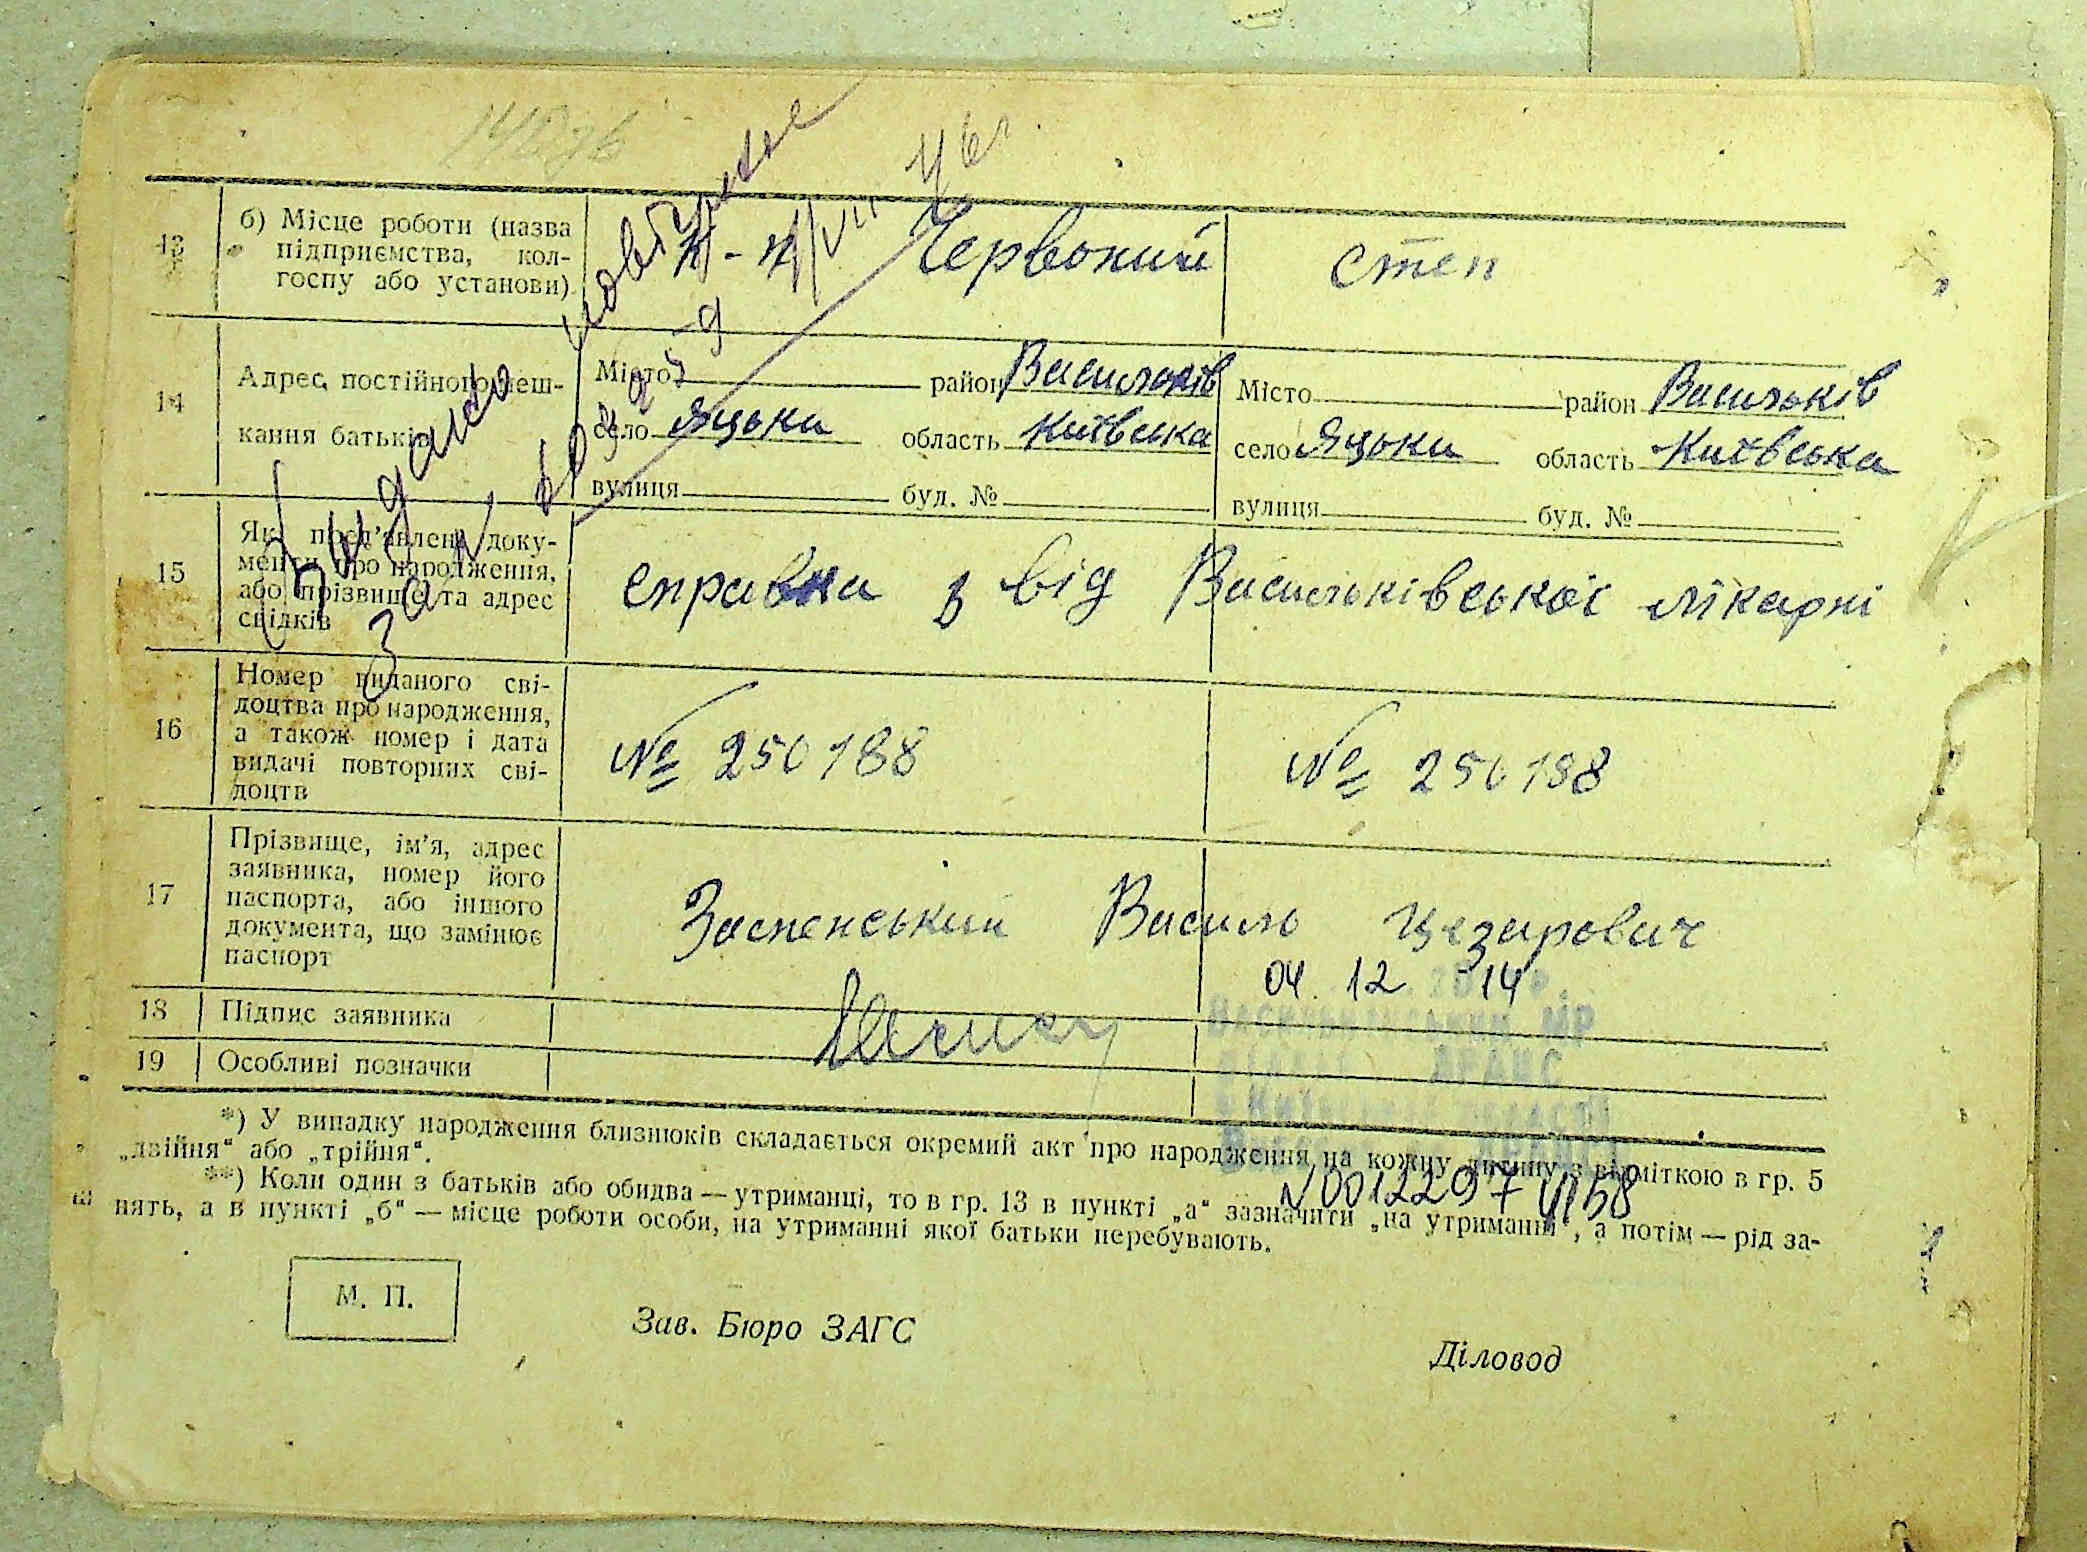 13 б) Місце роботи (назва підприємства, колгоспу або установи) к-п Червоний степ
14 Адрес постійного мешкання батьків
Місто район Васильків Місто район Васильків
село Яцьки область Київська село Яцьки область Київська
вулиця буд. № вулиця буд. №
15 Які пред'явлені документи про народження, або прізвище та адрес свідків
справка з від Васильківської лікарні
16 Номер виданого свідоцтва про народження, а також номер і дата видачі повторних свідоцтв
№ 250188 № 250188
17 Прізвище, ім'я, адрес заявника, номер його паспорта, або іншого документа, що замінює паспорт
Заспенський Василь Цезарович
04. 12 14
18 Підпис заявника
19 Особливі позначки
МР
ДРАЦС
Видано повторне
*) У випадку народження близнюків складається окремий акт про народження на кожну дитину з відміткою в гр. 5
„двійня“ або „трійня“.
**) Коли один з батьків або обидва — утриманці, то в гр. 13 в пункті „а“ зазначити „на утриманні“, а потім — рід за-
нять, а в пункті „б“ — місце роботи особи, на утриманні якої батьки перебувають.
N0012297
М. П.
Зав. Бюро ЗАГС
Діловод